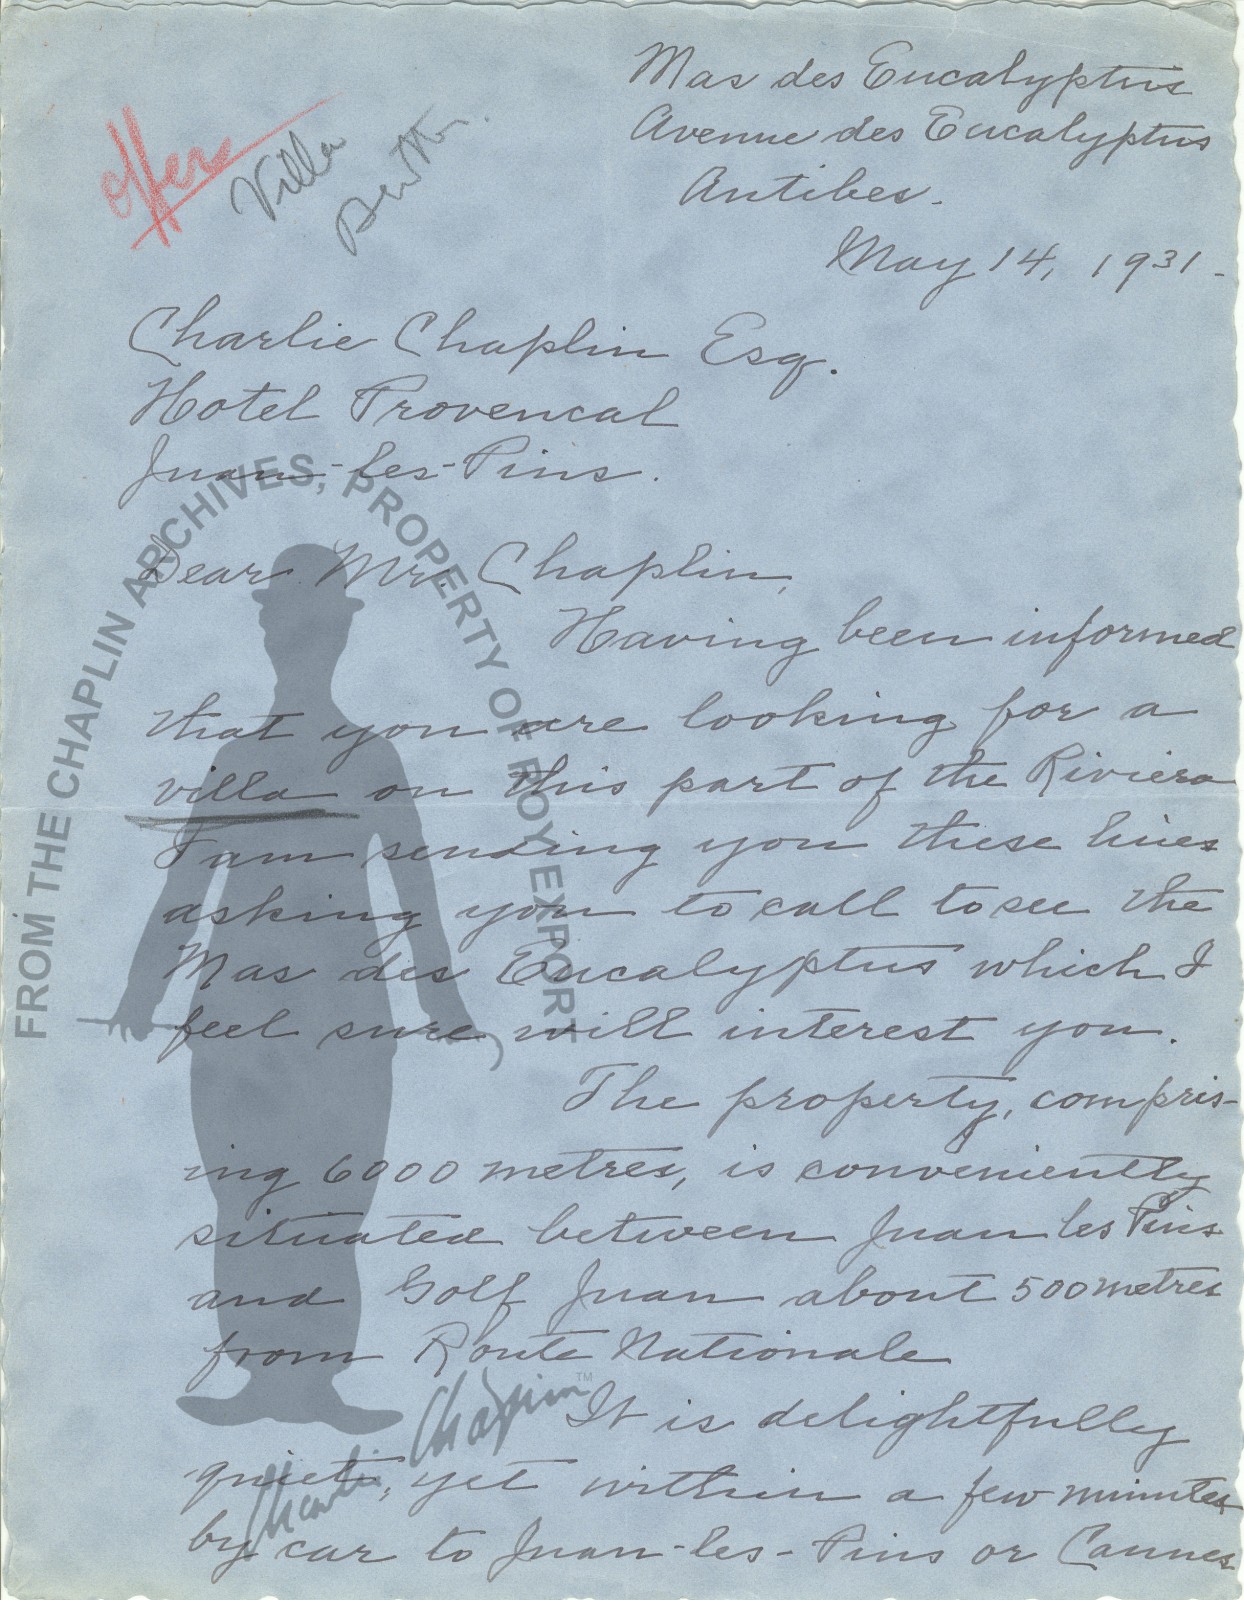 Mas des Eucalyptus
Avenue des Eucalyptus
Antibes.
May 14, 1931.
offers
Villa
Charlie Chaplin Esq.
Hotel Provencal
Juan-les-Pins.
Dear Mr. Chaplin,
Having been informed
that you are looking for a
villa on this part of the Riviera
I am sending you these lines
asking you to call to see the
Mas des Eucalyptus which I
feel sure will interest you.
The property, compris-
ing 6000 metres, is conveniently
situated between Juan les Pins
and Golf Juan about 500 metres
from Route Nationale
It is delightfully
quiet, yet within a few minutes
by car to Juan-les-Pins or Cannes
FROM THE CHAPLIN ARCHIVES, PROPERTY OF ROY EXPORT
Charlie Chaplin TM